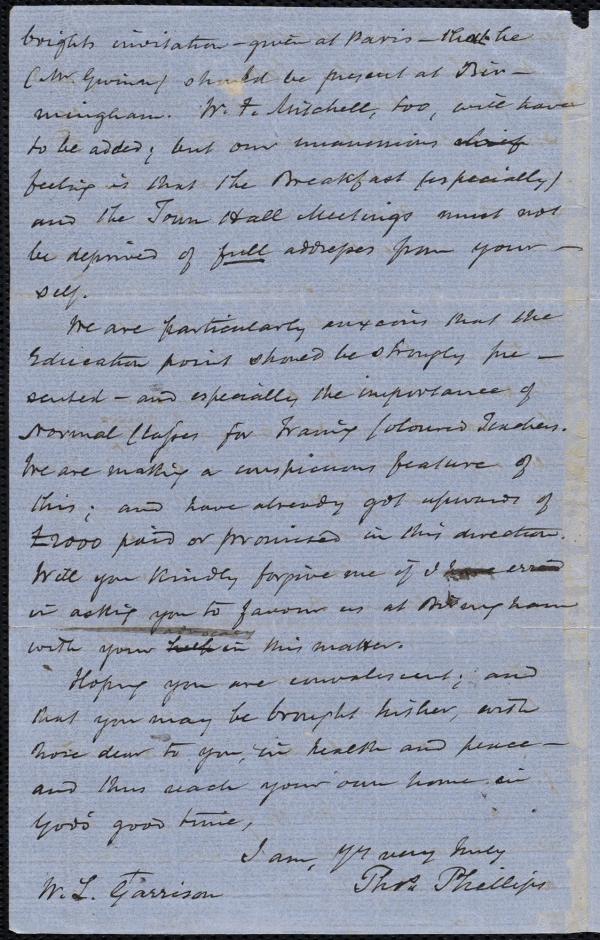 brights invitation – given at Paris – that he
(Mr. Gwinn) should be present at Bir-
mingham. W. F. Mitchell, too, will have
to be added; but our unanimous chief
feeling is that the Breakfast (especially)
and the Town Hall Meetings must not
be deprived of full addresses from your-
self.
We are particularly anxious that the
Education point should be strongly pre-
sented – and especially the importance of
Normal Classes for Traing Coloured Teachers.
We are making a conspicuous feature of
this; and have already got upwards of
£2000 paid or promised in this direction.
Will you kindly forgive me if I have erred
in asking you to favour us at Birmingham
advocacy
with your help in this matter.
Hoping you are convalescent; and
that you may be brought hither, with
those dear to you, in health and peace –
and thus reach your own home in
God's good time,
I am, Yr very truly
W. L. Garrison Thos. Phillips